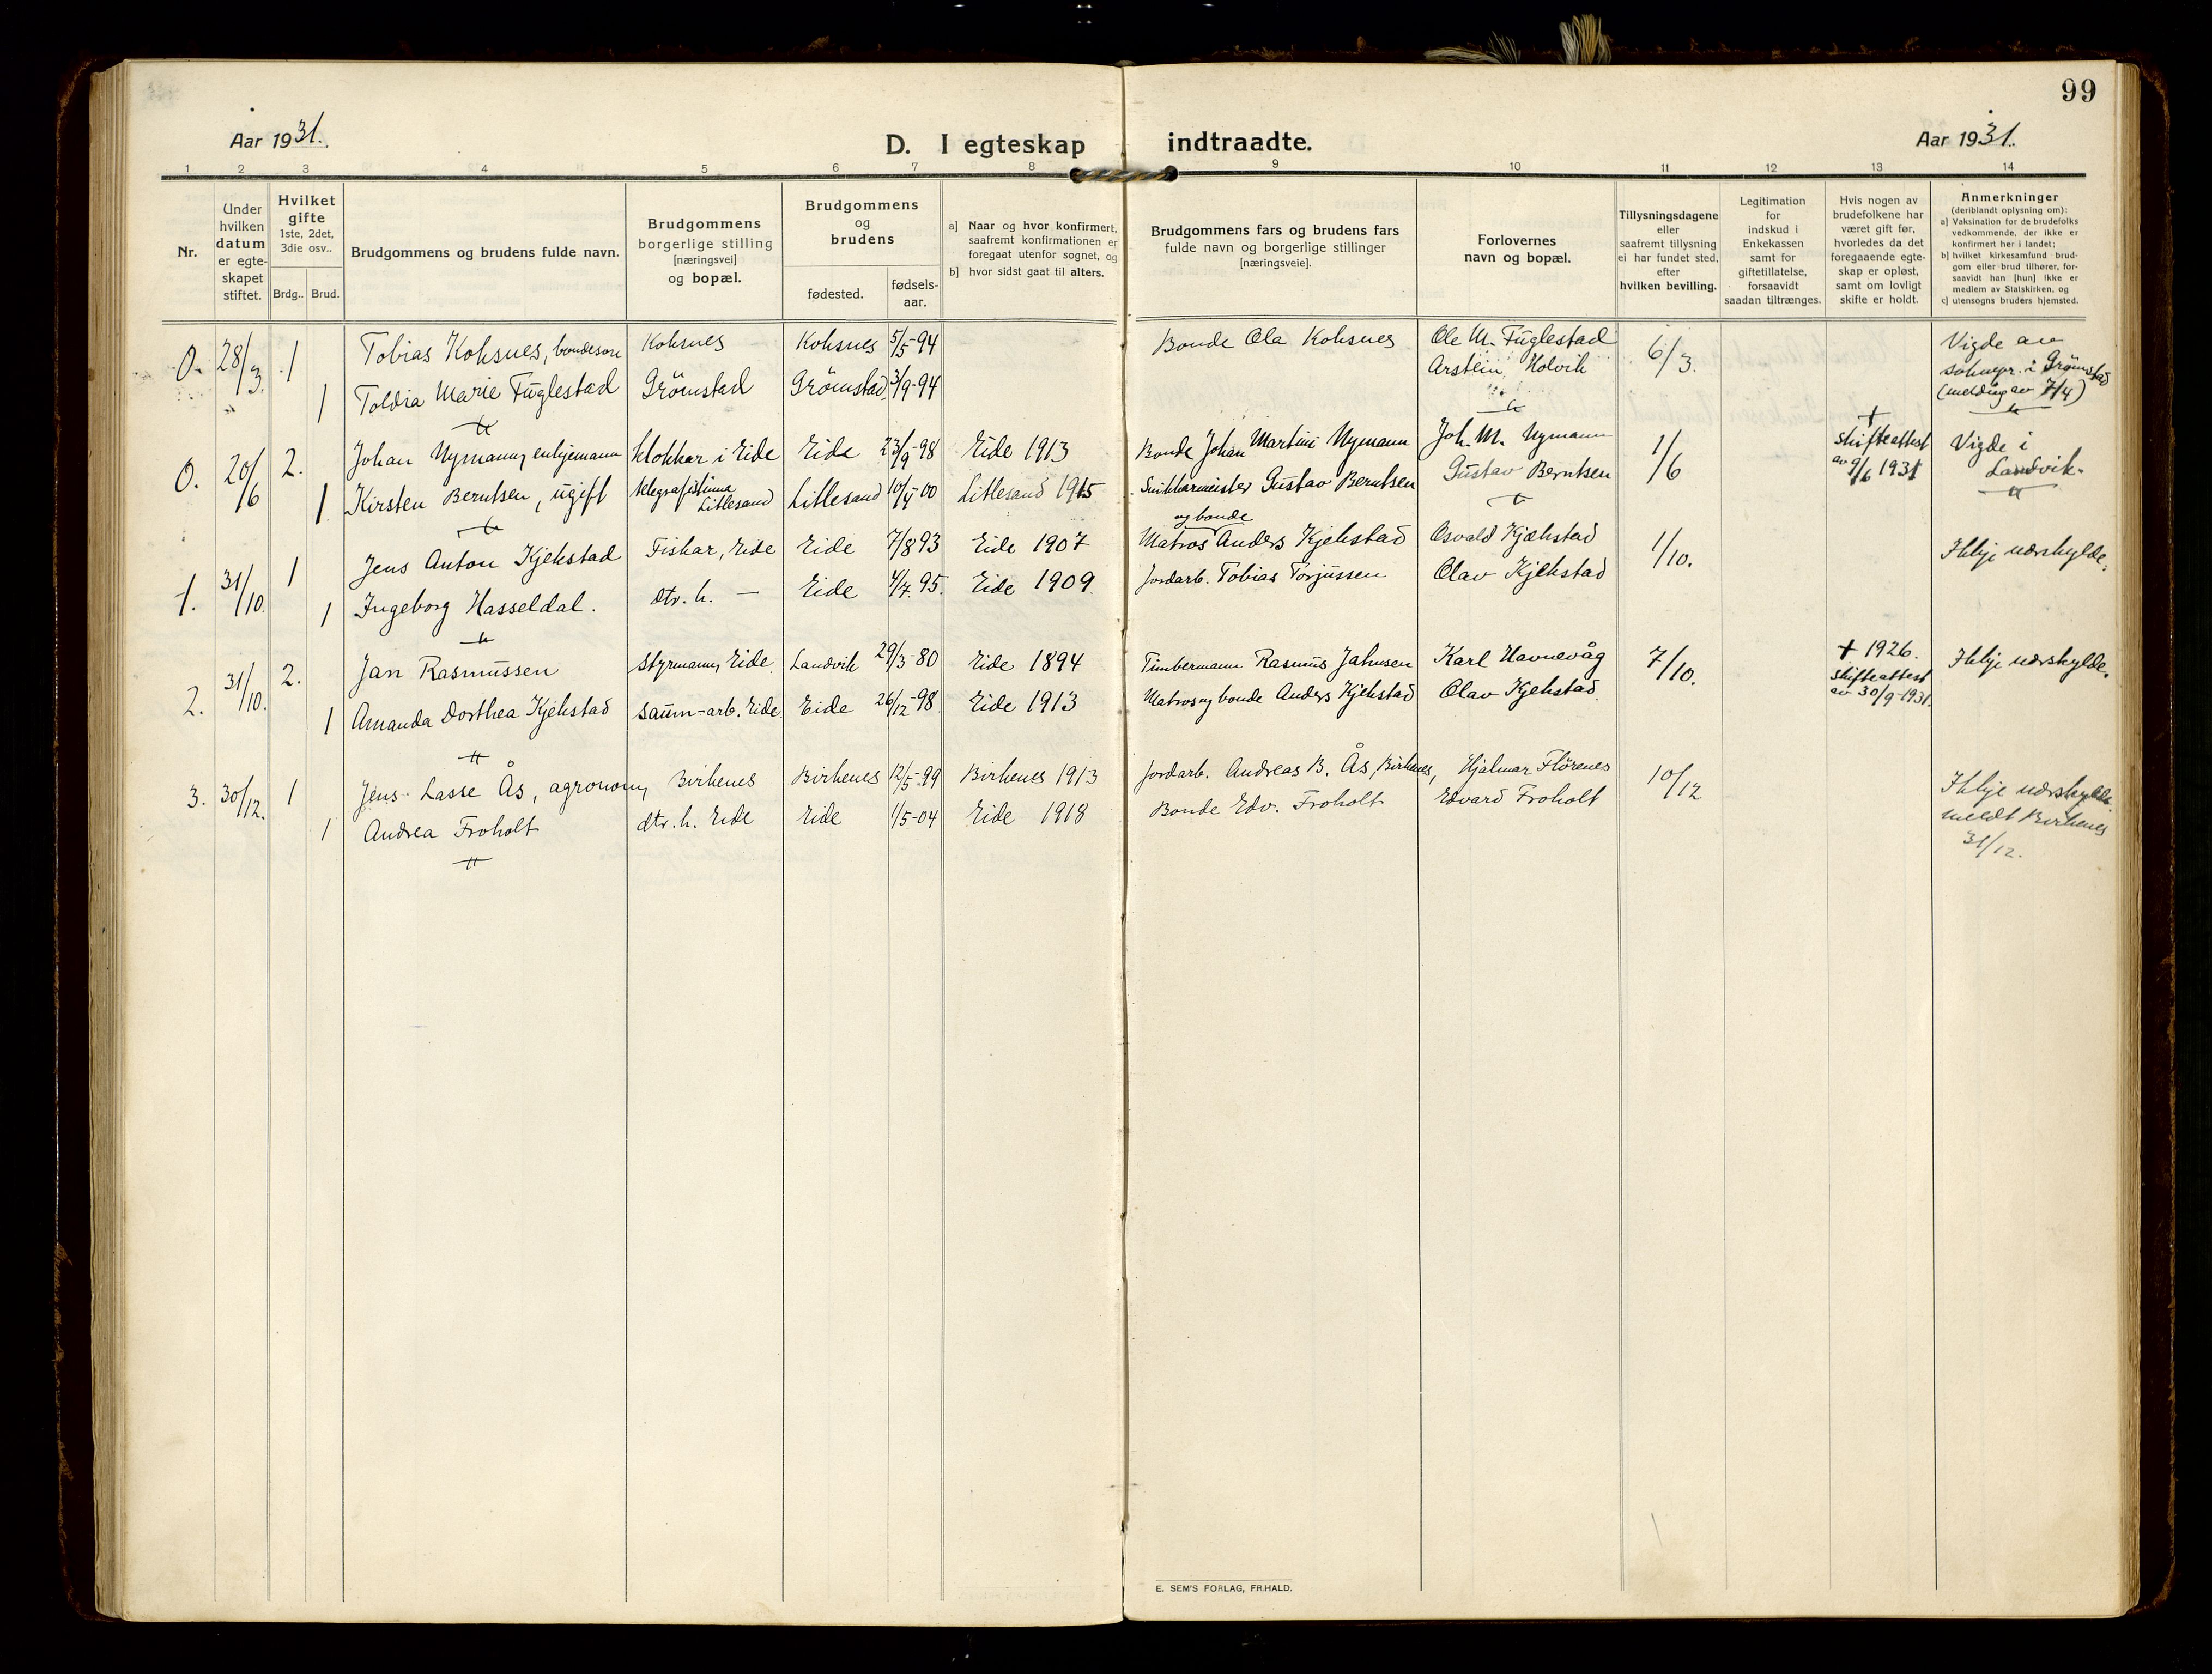 99
Aar 1931.
D. I egteskap indtraadte.
Aar 1931.
1 2 3 4 5 6 7 8 9 10 11 12 13 14
Nr.
Under
hvilken
datum
er egte-
skapet
stiftet.
Hvilket
gifte
1ste, 2det,
3die osv..
Brdg.. Brud.
Brudgommens og brudens fulde navn.
Brudgommens
borgerlige stilling
[næringsvei]
og bopæl.
Brudgommens
og
brudens
fødested.
fødsels-
aar.
a] Naar og hvor konfirmert,
saafremt konfirmationen er
foregaat utenfor sognet, og
b] hvor sidst gaat til alters.
Brudgommens fars og brudens fars
fulde navn og borgerlige stillinger
[næringsveie].
Forlovernes
navn og bopæl.
Tillysningsdagene
eller
saafremt tillysning
ei har fundet sted,
efter
hvilken bevilling.
Legitimation
for
indskud i
Enkekassen
samt for
giftetillatelse,
forsaavidt
saadan tiltrænges.
Hvis nogen av
brudefolkene har
været gift før,
hvorledes da det
foregaaende egte-
skap er opløst,
samt om lovligt
skifte er holdt.
Anmerkninger
(deriblandt oplysning om):
a] Vaksination for de brudefolks
vedkommende, der ikke er
konfirmert her i landet;
b] hvilket kirkesamfund brud-
gom eller brud tilhører, for-
saavidt han [hun] ikke er
medlem av Statskirken, og
c] utensogns bruders hjemsted.
0. 28/3. 1 Tobias Koksnes, bondeson Koksnes Koksnes 5/5-94 Bonde Ola Koksnes Ole M. Fuglestad 6/3. Vigde av
1 Toldia Marie Fuglestad Grömstad Grömstad 3/9-94 Arstein Holvik soknepr. i Grömstad
(melding av 7/4)
0. 20/6 2. Johan Nymann, enkjemann klokkar i Eide Eide 23/9-98 Eide 1913 Bonde Johan Martini Nymann Joh. M. Nymann 1/6 + skifteattest Vigde i
1 Kirsten Berntsen, ugift telegrafistinna Lillesand Lillesand 10/4-00 Lillesand 1915 Snikkarmeister Gustav Berntsen Gustav Berntsen av 9/6 1931 Landvik.
1. 31/10. 1 Jens Anton Kjekstad Fiskar, Eide Eide 7/8 93 Eide 1907 Matros og bonde Anders Kjekstad Osvald Kjekstad 1/10. Ikkje uerskylde.
1 Ingeborg Hasseldal. dtr. h. — Eide 4/7. 95. Eide 1909. Jordarb. Tobias Torjussen Olav Kjekstad
2. 31/10. 2. Jan Rasmussen Styrmann, Eide Landvik 29/3-80 Eide 1894 Timbermann Rasmus Jahnsen Karl Havnevåg 7/10. + 1926. Ikkje uerskylde.
1 Amanda Dorthea Kjekstad saum-arb. Eide Eide 26/12-98. Eide 1913 Matros og bonde Anders Kjekstad Olav Kjekstad skifteattest
av 30/9-1931.
3. 30/12. 1 Jens Lasse Ås, agronom, Birkenes Birkenes 12/5-99 Birkenes 1913 Jordarb. Andreas B. Ås, Birkenes, Hjalmar Flörenes 10/12 Ikkje uerskylde
1 Andrea Froholt dtr. h. Eide Eide 1/5-04 Eide 1918 Bonde Edv. Froholt Edvard Froholt meldt Birkenes
31/12.
E. SEM'S FORLAG, FR.HALD.